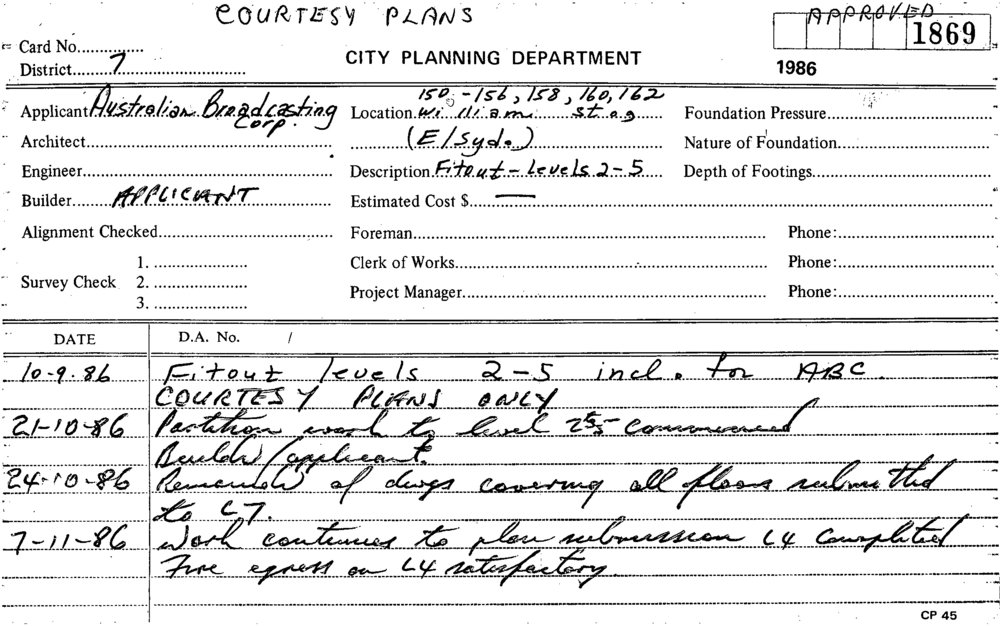 COURTESY PLANS
APPROVED
1869
Card No...............
District.......7..............................
CITY PLANNING DEPARTMENT
1986
Applicant Australian Broadcasting Corp.
Location 150 -156, 158, 160, 162
William St
(E/Syd.)
Foundation Pressure
Architect
Nature of Foundation
Engineer
Description Fitout - Levels 2-5
Depth of Footings
Builder APPLICANT
Estimated Cost $ —
Alignment Checked
Foreman
Phone:
Survey Check 1.
2.
3.
Clerk of Works
Phone:
Project Manager
Phone:
DATE
D.A. No. /
10-9-86 Fitout levels 2-5 incl. for ABC
COURTESY PLANS ONLY
21-10-86 Partition work to level 2 5 commenced
Builder/applicant.
24-10-86 Remainder of dwgs covering all floors submitted
to L7.
7-11-86 Work continues to plan submission L4 Completed
Fire egress on L4 satisfactory.
CP 45